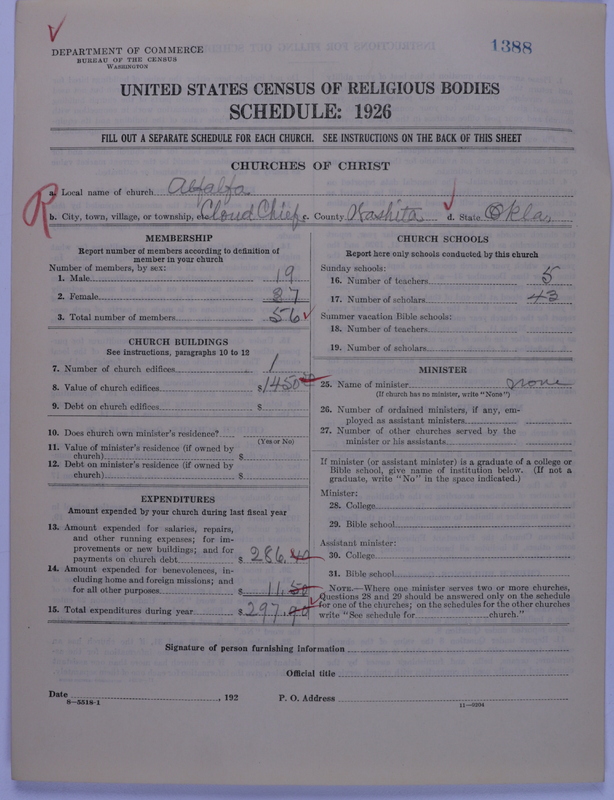 1388
DEPARTMENT OF COMMERCE
BUREAU OF THE CENSUS
WASHINGTON
UNITED STATES CENSUS OF RELIGIOUS BODIES
SCHEDULE: 1926
FILL OUT A SEPARATE SCHEDULE FOR EACH CHURCH. SEE INSTRUCTIONS ON THE BACK OF THIS SHEET
CHURCHES OF CHRIST
a. Local name of church Alfalfa
R
b. City, town, village, or township, etc. Cloud Chief c. County Washita d. State Okla.
MEMBERSHIP
Report number of members according to definition of
member in your church
Number of members, by sex:
1. Male 19
2. Female 37
3. Total number of members 56
CHURCH BUILDINGS
See instructions, paragraphs 10 to 12
7. Number of church edifices 1
8. Value of church edifices $1450
9. Debt on church edifices $
10. Does church own minister's residence?
(Yes or No)
11. Value of minister's residence (if owned by
church) $
12. Debt on minister's residence (if owned by
church) $
EXPENDITURES
Amount expended by your church during last fiscal year
13. Amount expended for salaries, repairs,
and other running expenses; for im-
provements or new buildings; and for
payments on church debt $ 286.40
14. Amount expended for benevolences, in-
cluding home and foreign missions; and
for all other purposes $ 11.50
15. Total expenditures during year $ 297.90
CHURCH SCHOOLS
Report here only schools conducted by this church
Sunday schools:
16. Number of teachers 5
17. Number of scholars 43
Summer vacation Bible schools:
18. Number of teachers
19. Number of scholars
MINISTER
25. Name of minister none
(If church has no minister, write "None")
26. Number of ordained ministers, if any, em-
ployed as assistant ministers
27. Number of other churches served by the
minister or his assistants
If minister (or assistant minister) is a graduate of a college or
Bible school, give name of institution below. (If not a
graduate, write "No" in the space indicated.)
Minister:
28. College
29. Bible school
Assistant minister:
30. College
31. Bible school
NOTE.—Where one minister serves two or more churches,
Questions 28 and 29 should be answered only on the schedule
for one of the churches; on the schedules for the other churches
write "See schedule for church."
Signature of person furnishing information
Official title
Date , 192 P. O. Address
8—5518-1
11—9204